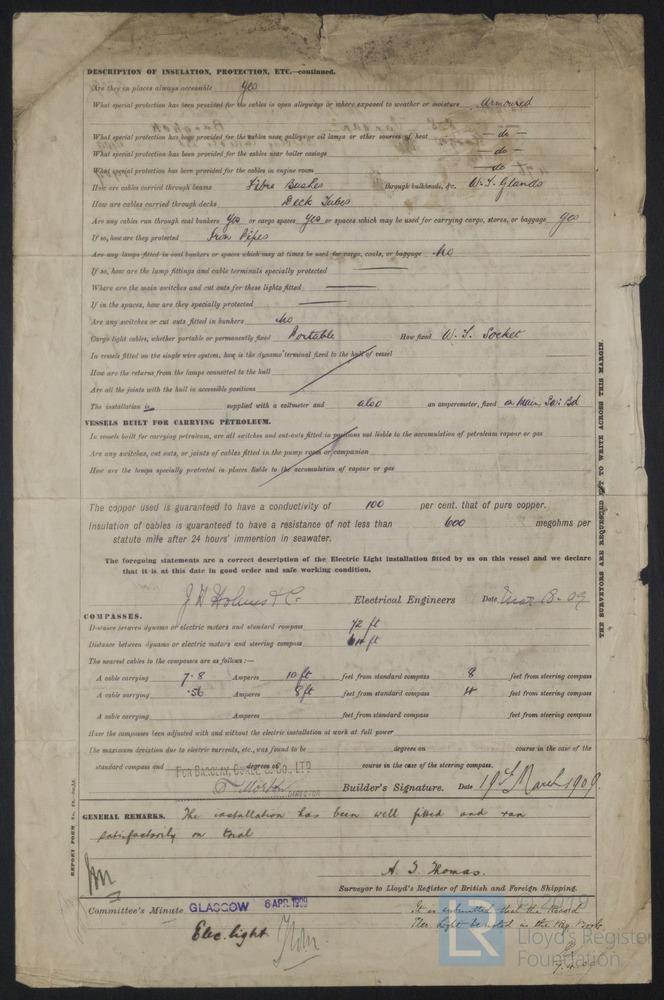 DESCRIPTION OF INSULATION, PROTECTION, ETC.—continued.
Are they in places always accessible Yes
What special protection has been provided for the cables in open alleyways or where exposed to weather or moisture Armoured
What special protection has been provided for the cables near galleys or oil lamps or other sources of heat — do —
What special protection has been provided for the cables near boiler casings — do —
What special protection has been provided for the cables in engine room — do —
How are cables carried through beams Fibre Bushes through bulkheads, &c. W.T. Glands
How are cables carried through decks Deck Tubes
Are any cables run through coal bunkers Yes or cargo spaces Yes or spaces which may be used for carrying cargo, stores, or baggage Yes
If so, how are they protected Iron Pipes
Are any lamps fitted in coal bunkers or spaces which may at times be used for cargo, coals, or baggage No
If so, how are the lamp fittings and cable terminals specially protected
Where are the main switches and cut outs for these lights fitted
If in the spaces, how are they specially protected
Are any switches or cut outs fitted in bunkers No
Cargo light cables, whether portable or permanently fixed Portable How fixed W.T. Socket
In vessels fitted on the single wire system, how is the dynamo terminal fixed to the hull of vessel
How are the returns from the lamps connected to the hull
Are all the joints with the hull in accessible positions
The installation is supplied with a voltmeter and also an amperemeter, fixed on Main Sw: Bd
VESSELS BUILT FOR CARRYING PETROLEUM.
In vessels built for carrying petroleum, are all switches and cut-outs fitted in positions not liable to the accumulation of petroleum vapour or gas
Are any switches, cut outs, or joints of cables fitted in the pump room or companion
How are the lamps specially protected in places liable to the accumulation of vapour or gas
The copper used is guaranteed to have a conductivity of 100 per cent. that of pure copper.
Insulation of cables is guaranteed to have a resistance of not less than 600 megohms per
statute mile after 24 hours' immersion in seawater.
The foregoing statements are a correct description of the Electric Light installation fitted by us on this vessel and we declare
that it is at this date in good order and safe working condition,
J H Holmes & Co. Electrical Engineers Date Mar 18-09
COMPASSES.
Distance between dynamo or electric motors and standard compass 72 ft
Distance between dynamo or electric motors and steering compass 64 ft
The nearest cables to the compasses are as follows:—
A cable carrying 7.8 Amperes 10 ft feet from standard compass 8 feet from steering compass
A cable carrying .56 Amperes 8 ft feet from standard compass 4 feet from steering compass
A cable carrying Amperes feet from standard compass feet from steering compass
Have the compasses been adjusted with and without the electric installation at work at full power
The maximum deviation due to electric currents, etc., was found to be degrees on course in the case of the
standard compass and degrees on course in the case of the steering compass.
FOR BARCLAY, CURLE & CO., LTD
DIRECTOR Builder's Signature. Date 19th March 1909.
GENERAL REMARKS. The installation has been well fitted and ran
satisfactorily on trial
A. T. Thomas.
Surveyor to Lloyd's Register of British and Foreign Shipping.
Committee's Minute GLASGOW 6 APR. 1909
It is submitted that the Record
Elec. light
Elec. Light be noted in the Reg. Book
7.4.09
THE SURVEYORS ARE REQUESTED NOT TO WRITE ACROSS THIS MARGIN.
LR
Lloyd's Register
Foundation